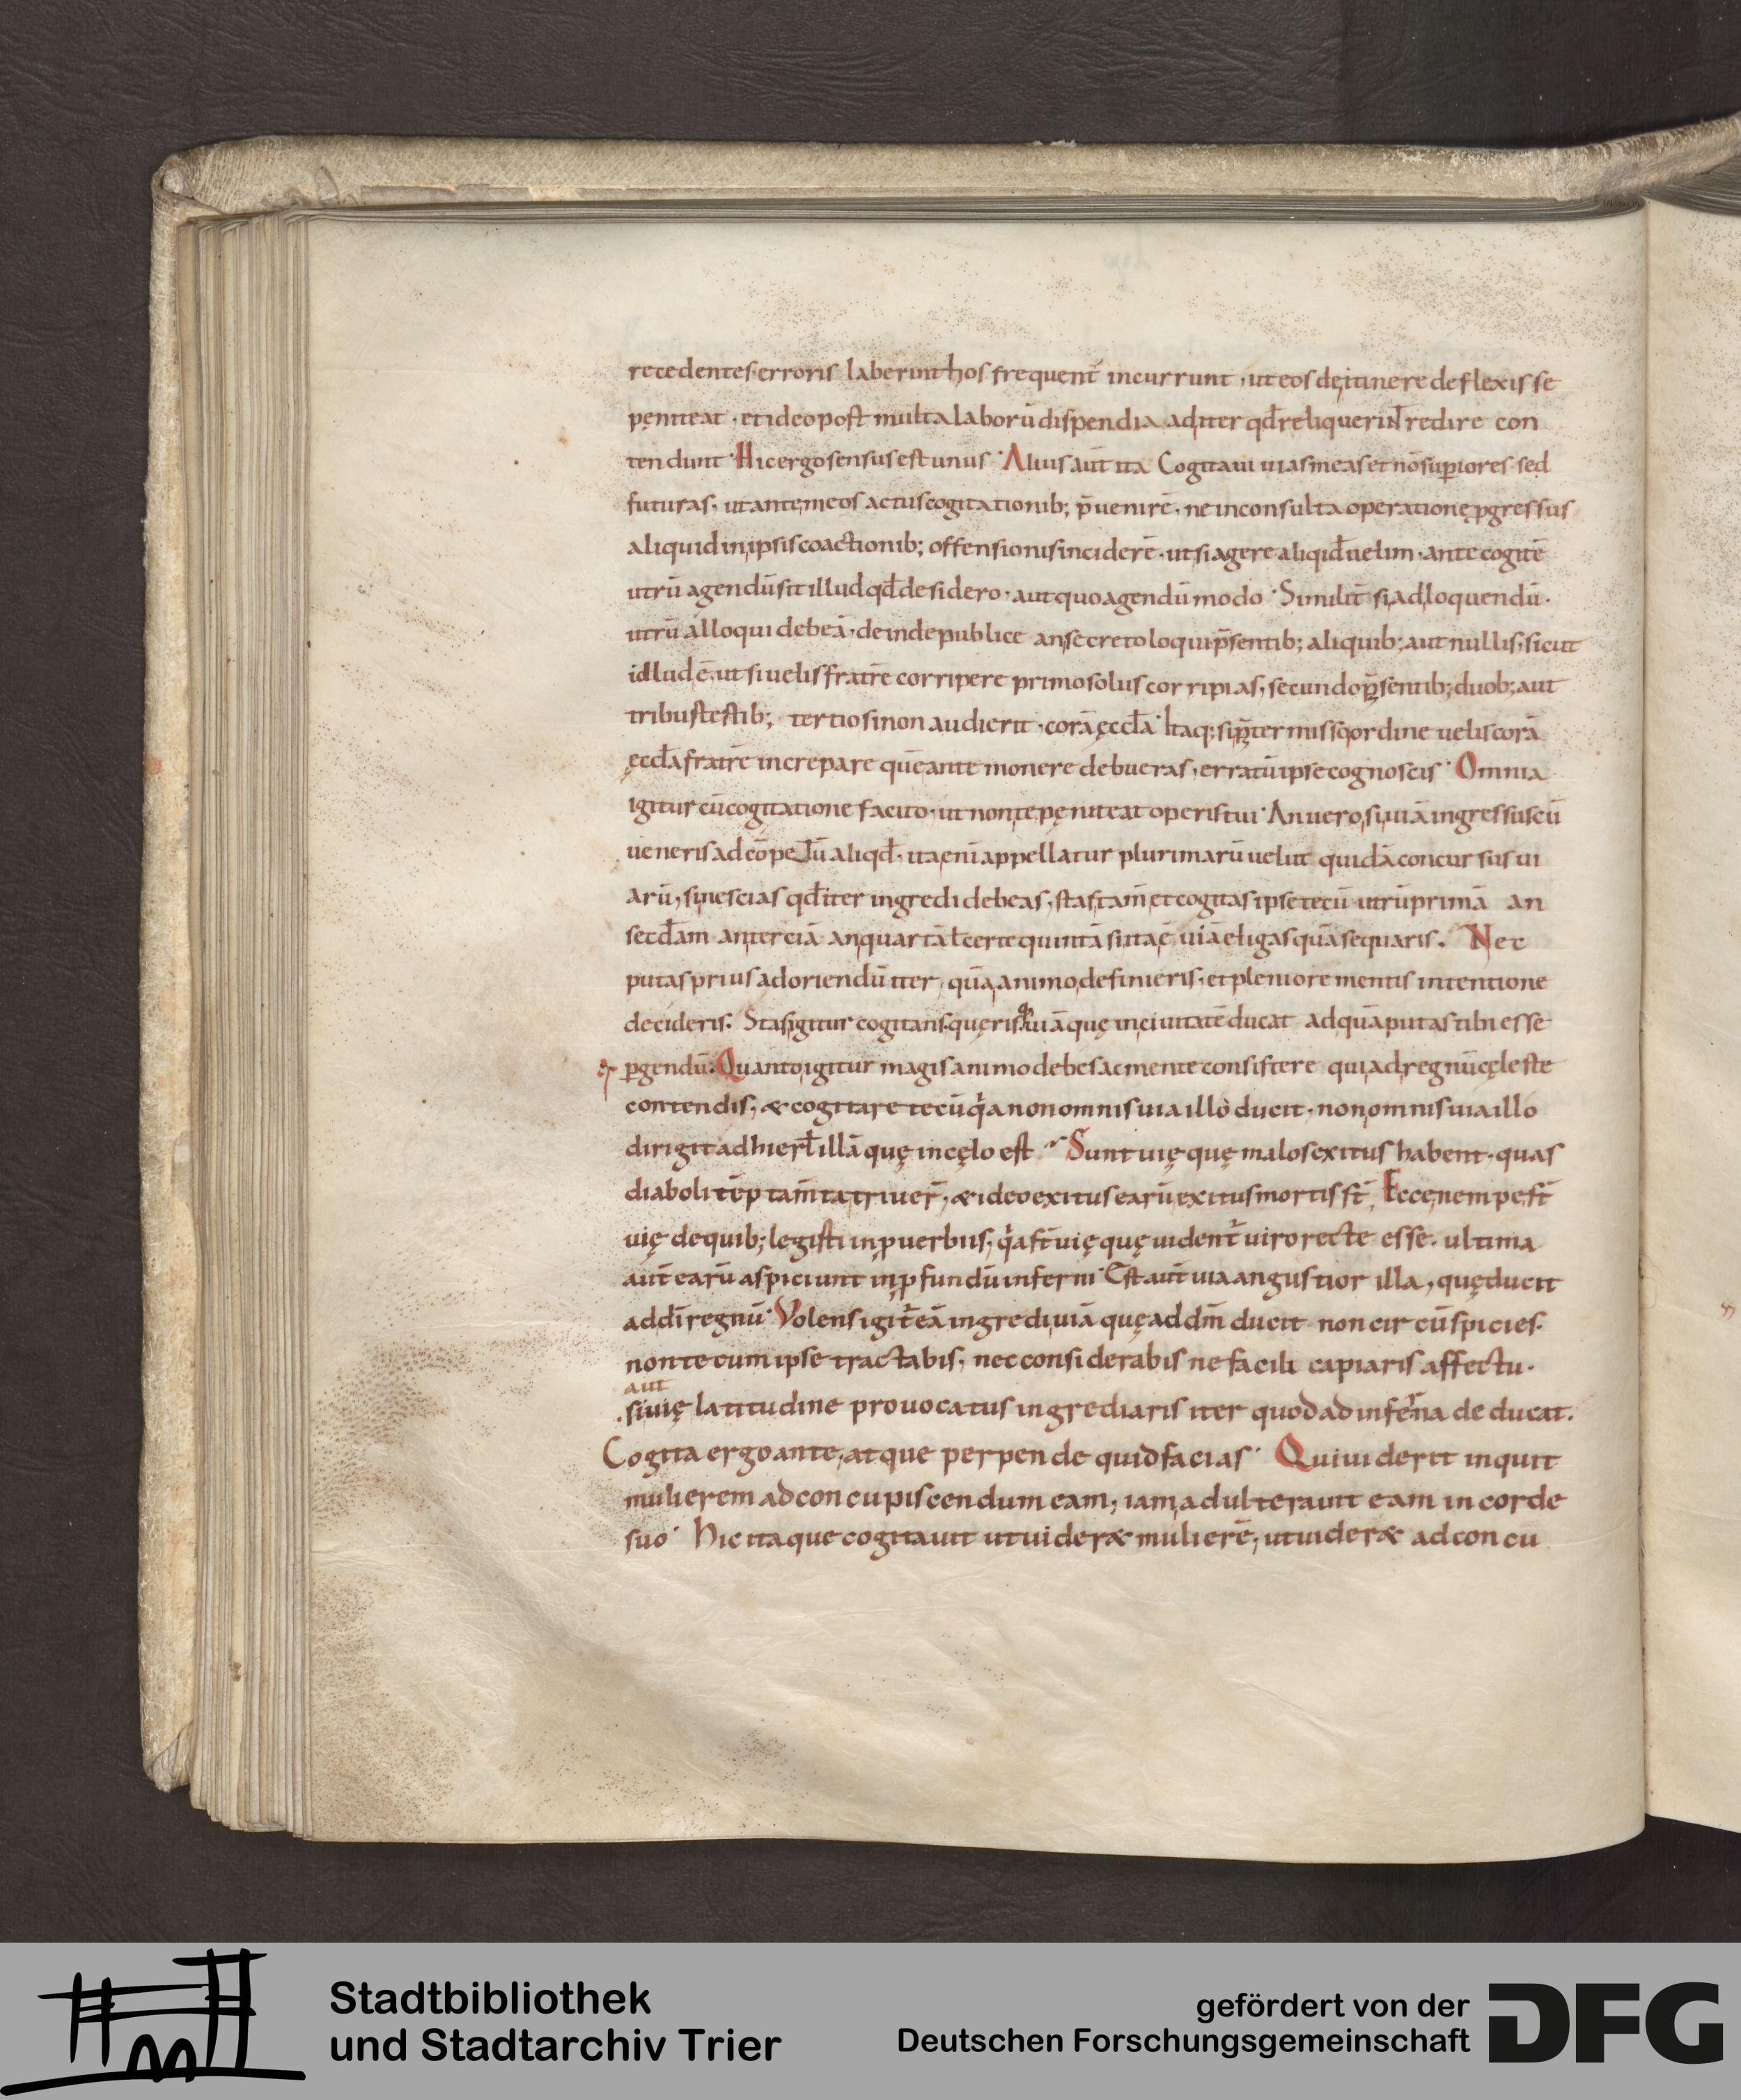 recedentes erroris laberinthos frequent̄ incurrunt, ut eos de itinere deflexisse
pęniteat · et ideo post multa laborū dispendia ad iter qd̄ reliquerint redire con
tendunt · Hic ergo sensus est unus · Alius aūt ita Cogitaui uias meas et nō supiores sed
futuras, ut ante meos actus cogitationib; p̄uenirē, ne inconsulta operatione ꝓgressus
aliquid in ipsis coactionib; offensionis inciderē · ut si agere aliqid uelim · ante cogitē
utrū agendū sit illud qd̄ desidero · aut quo agendū modo · Similit̄ si ad loquendū ·
utrū alloqui debeā · deinde publice an secreto loqui p̄sentib; aliquib; aut nullis, sicut
illud ē, ut si uelis fratrē corripere primo solus corripias, secundo p̄sentib; duob; aut
tribus testib; tertio si non audierit · corā ęccl̄a · Itaq; si p̄termisso ordine uelis corā
ęccl̄a fratrē increpare quē ante monere debueras, erratū ipse cognoscis · Omnia
igitur cū cogitatione facito · ut non te pęniteat operis tui · An uero, si uiā ingressus cū
ueneris ad cōpetū aliqd̄ · ita enī appellatur plurimarū uelut quidā concursus ui
arū, si nescias qd̄ iter ingredi debeas, stas tam̄ et cogitas ipse tecū utrū primā an
secd̄am an terciā an quartā ł certe quintā si ita ē uiā eligas quā sequaris. Nec
putas prius adoriendū iter, quā animo definieris, et pleniore mentis intentione
decideris. Stas igitur cogitans, queris uiā quę in ciuitatē ducat ad quā putas tibi esse
pgendū. Quanto igitur magis animo debes ac mente consistere qui ad regnū cęleste
contendis, & cogitare tecū q̇a non omnis uia illò ducit · non omnis uia illo
dirigit ad hierl̄ illā quę in cęlo est · Sunt uię quę malos exitus habent · quas
diaboli tēptam̄ta triuer̄, & ideo exitus earū exitus mortis st̄ Ecce nempe st̄
uię de quib; legisti in ꝓuerbiis, q̇a st̄ uię quę uident̄ uiro recte esse. ultima
aūt earū aspiciunt in ꝓfundū inferni · Est aūt uia angustior illa, quę ducit
ad dī regnū · Volens igit̄ eā ingredi uiā quę ad dm̄ ducit non circū spicies.
non tecum ipse tractabis, nec considerabis ne facili capiaris affectu.
aut
.si uię latitudine prouocatus ingrediaris iter quod ad inferna deducat.
Cogita ergo ante, atque perpende quid facias · Qui uiderit inquit
mulierem ad concupiscendum eam, iam adulterauit eam in corde
suo · Hic itaque cogitauit ut uider& mulierē, ut uider& ad concu
Stadtbibliothek
und Stadtarchiv Trier
gefördert von der
Deutschen Forschungsgemeinschaft
DFG